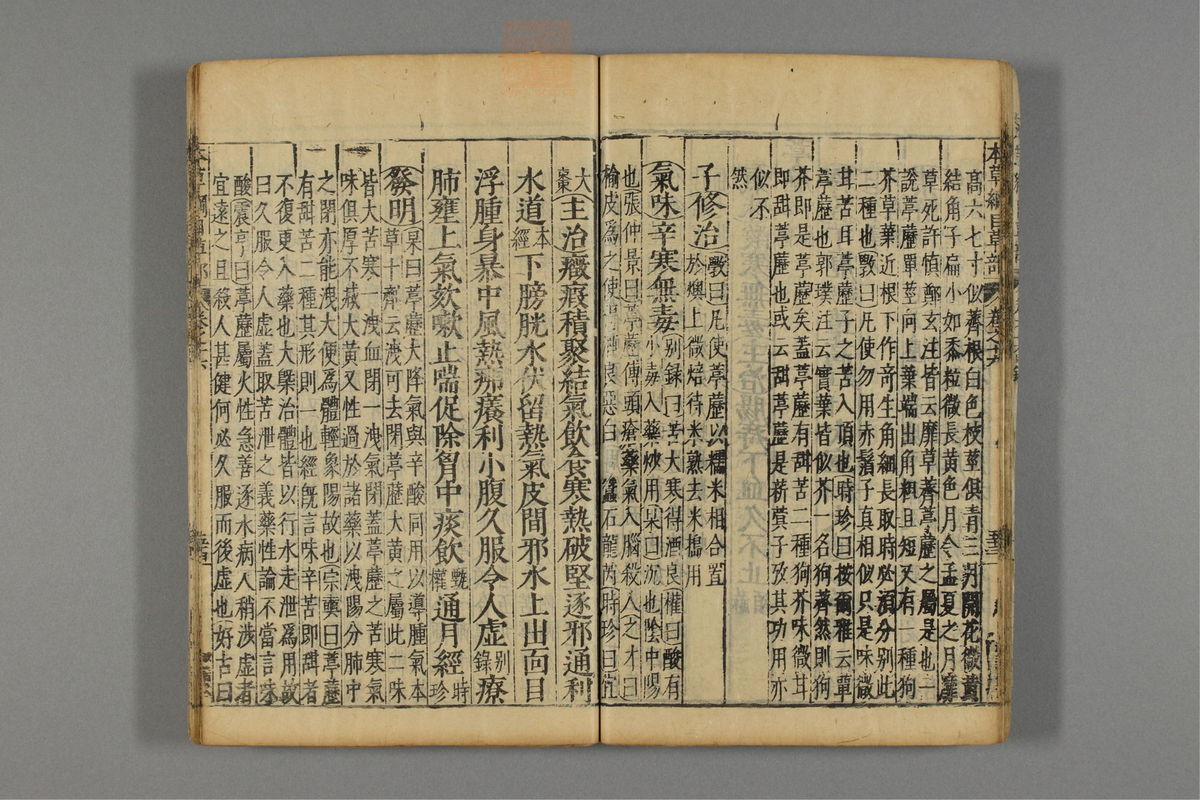 高六七寸似薺根白色梗莖俱青三月開花微黃
結角子扁小如黍粒微長黃色月令孟夏之月靡
草死許慎鄭玄注皆云靡草薺葶藶之屬是也一
說葶藶單莖向上葉端出角粗且短又有一種狗
芥草葉近根下作奇生角細長取時必須分別此
二種也斆曰凡使勿用赤鬚子真相似只是味微
甘苦耳葶藶子之苦入頂也時珍曰按爾雅云蕇
葶藶也郭璞注云實葉皆似芥一名狗薺然則狗
芥即是葶藶矣蓋葶藶有甜苦二種狗芥味微甘
即甜葶藶也或云甜葶藶是菥蓂子攷其功用亦
似不
然
子修治斆曰凡使葶藶以糯米相合置
於燠上微焙待米熟去米搗用
氣味辛寒無毒別録曰苦大寒得酒良權曰酸有
小毒入藥炒用杲曰沉也陰中陽
也張仲景曰葶藶傅頭瘡藥氣入腦殺人之才曰
榆皮爲之使得酒良惡白殭蠶石龍芮時珍曰宜
大
棗主治癥瘕積聚結氣飲食寒熱破堅逐邪通利
水道本
經下膀胱水伏留熱氣皮間邪水上出面目
浮腫身暴中風熱疿癢利小腹久服令人虛別
錄療
肺壅上氣欬嗽止喘促除胷中痰飲甄
權通月經時
珍
發明杲曰葶藶大降氣與辛酸同用以導腫氣本
草十劑云洩可去閉葶藶大黃之屬此二味
皆大苦寒一洩血閉一洩氣閉蓋葶藶之苦寒氣
味俱厚不减大黃又性過於諸藥以洩陽分肺中
之閉亦能洩大便爲體輕象陽故也宗奭曰葶藶
有甜苦二種其形則一也經旣言味辛苦即甜者
不復更入藥也大槩治體皆以行水走泄爲用故
曰久服令人虛蓋取苦泄之義藥性論不當言味
酸震亨曰葶藶屬火性急善逐水病人稍涉虛者
宜遠之且殺人甚健何必久服而後虛也好古曰